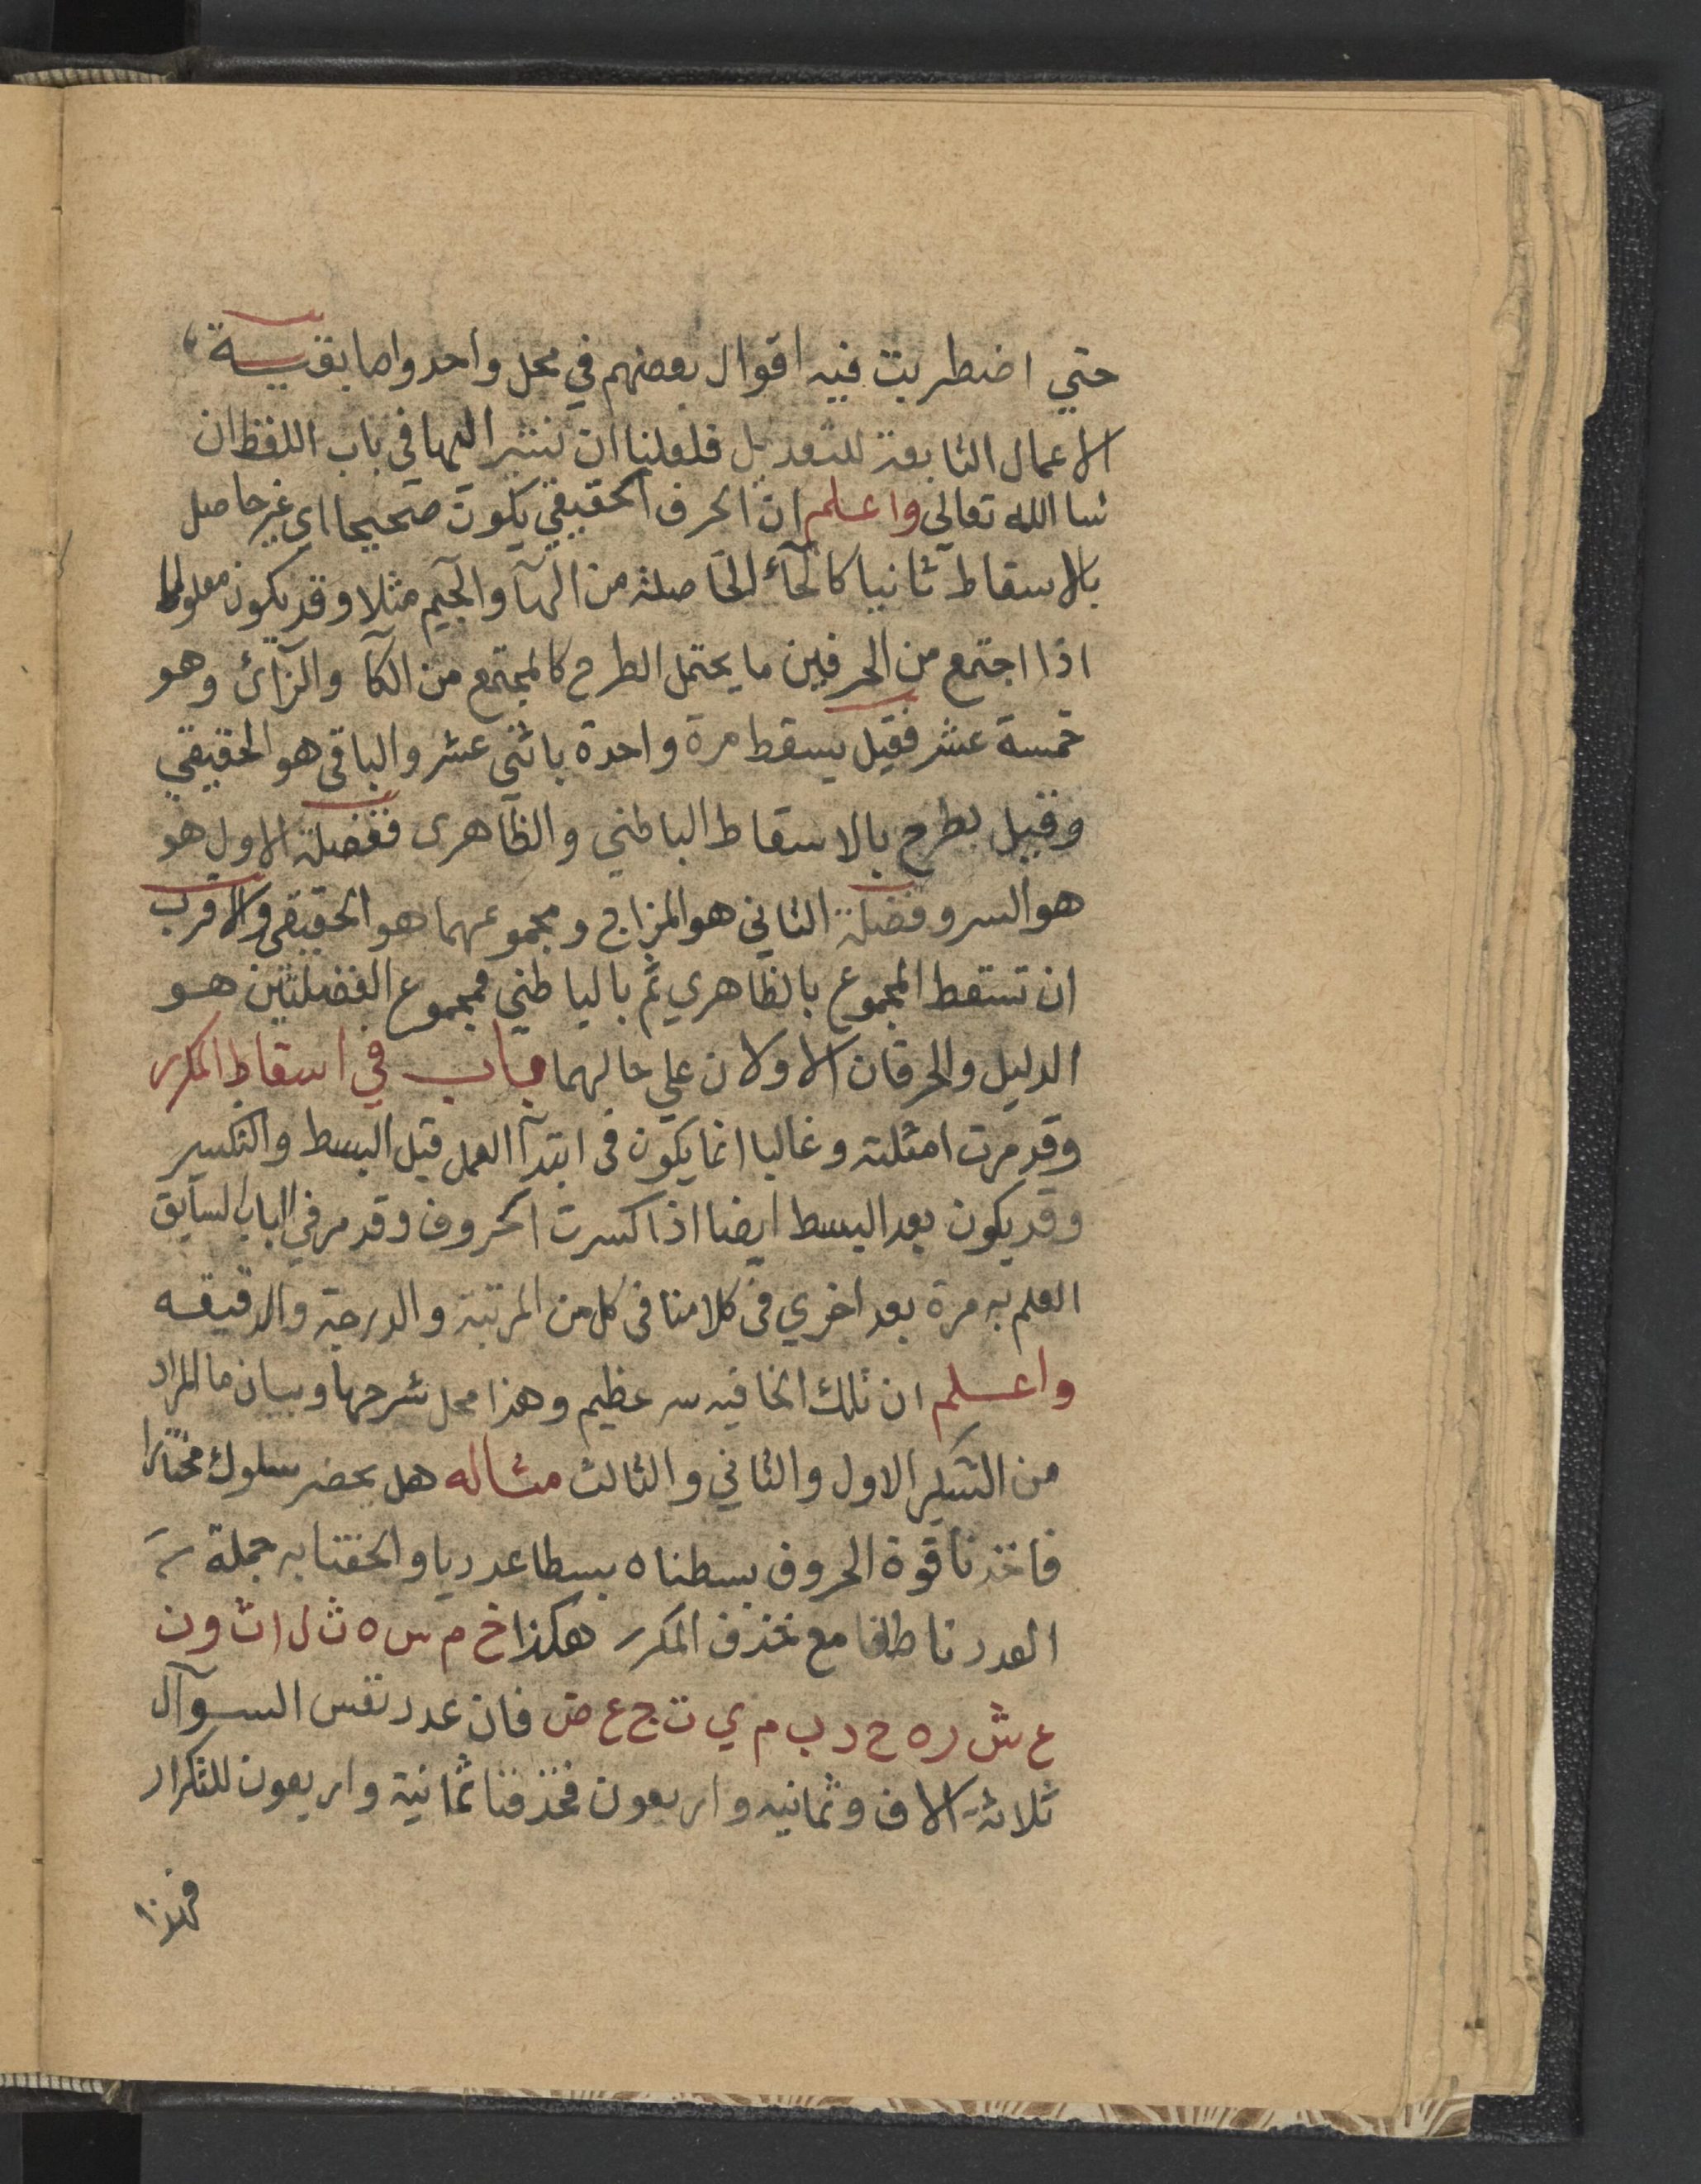 حتي اضطربت فيه اقوال بعضهم في محل واحد واما بقيــة
الاعمال التابعة للتعديل فلعلنا ان نشير اليها في باب اللفظ ان
شا الله تعالى واعلم ان الحرف الحقيقي يكون صحيحا اي غير حاصل
بالاسقاط ثانيا كالحآء الحاصلة من الهآ والجيم مثلا وقد يكون معلولا
اذا اجتمع من الحرفين ما يحتمل الطرح كالمجتمع من الحآ والزآئ وهو
خمسة عشر فقيل يسقط مرة واحدة باثني عشر والباقي هو الحقيقي
وقيل يطرح بالاسقاط الباطني والظاهرى ففضلة الاول هو
هو السر وفضلة الثاني هو المزاج ومجموعهما هو الحقيقي والاقرب
ان تسقط المجموع بالظاهري ثم بالباطني فمجموع الفضلتين هــو
الدليل والحرفان الاولان علي حالهما باب في اسقاط المكرر
وقد مرت امثلته وغالبا انما يكون في ابتدآ العمل قبل البسط والتكسير
وقد يكون بعد البسط ايضا اذا كسرت الحروف وقد مر في الباب السابق
العلم به مرة بعد اخري في كلامنا في كل من المرتبة والدرجة والدقيقه
واعلم ان تلك الخافيه سر عظيم وهذا محل شرحها وبيان ما المراد
من التسكير الاول والثاني والثالث مثاله هل يحضر سلوك مختارا
فاخذنا قوة الحروف بسطناه بسطا عدديا والحقنا به جملة
العدد ناطقا مع نحذف المكرر هكذا خ م س ه ث ل ا ث و ن
ع ش ر ه ح د ب م ي ت ج ع ض فان عدد نفس السوآل
ثلاثة الاف وثمانيه واربعون فحذفنا ثمانية واربعون للتكرار
فهذا